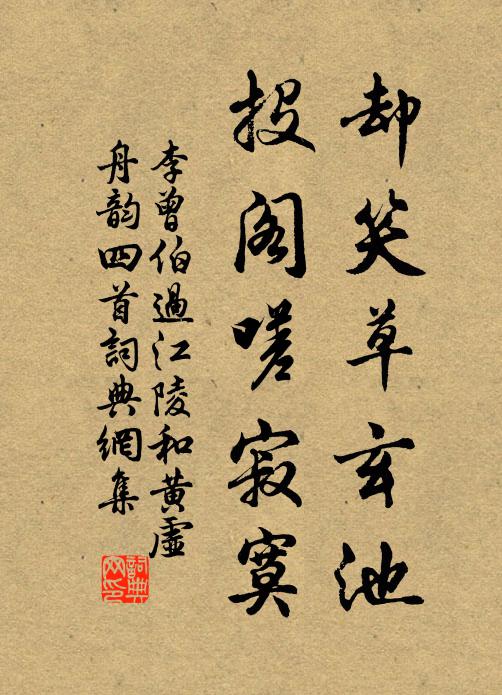 却笑草玄池
投阁嗟寂寞
李曾伯過江陵和黄虛
舟韵四首詞典網集
詞典网印